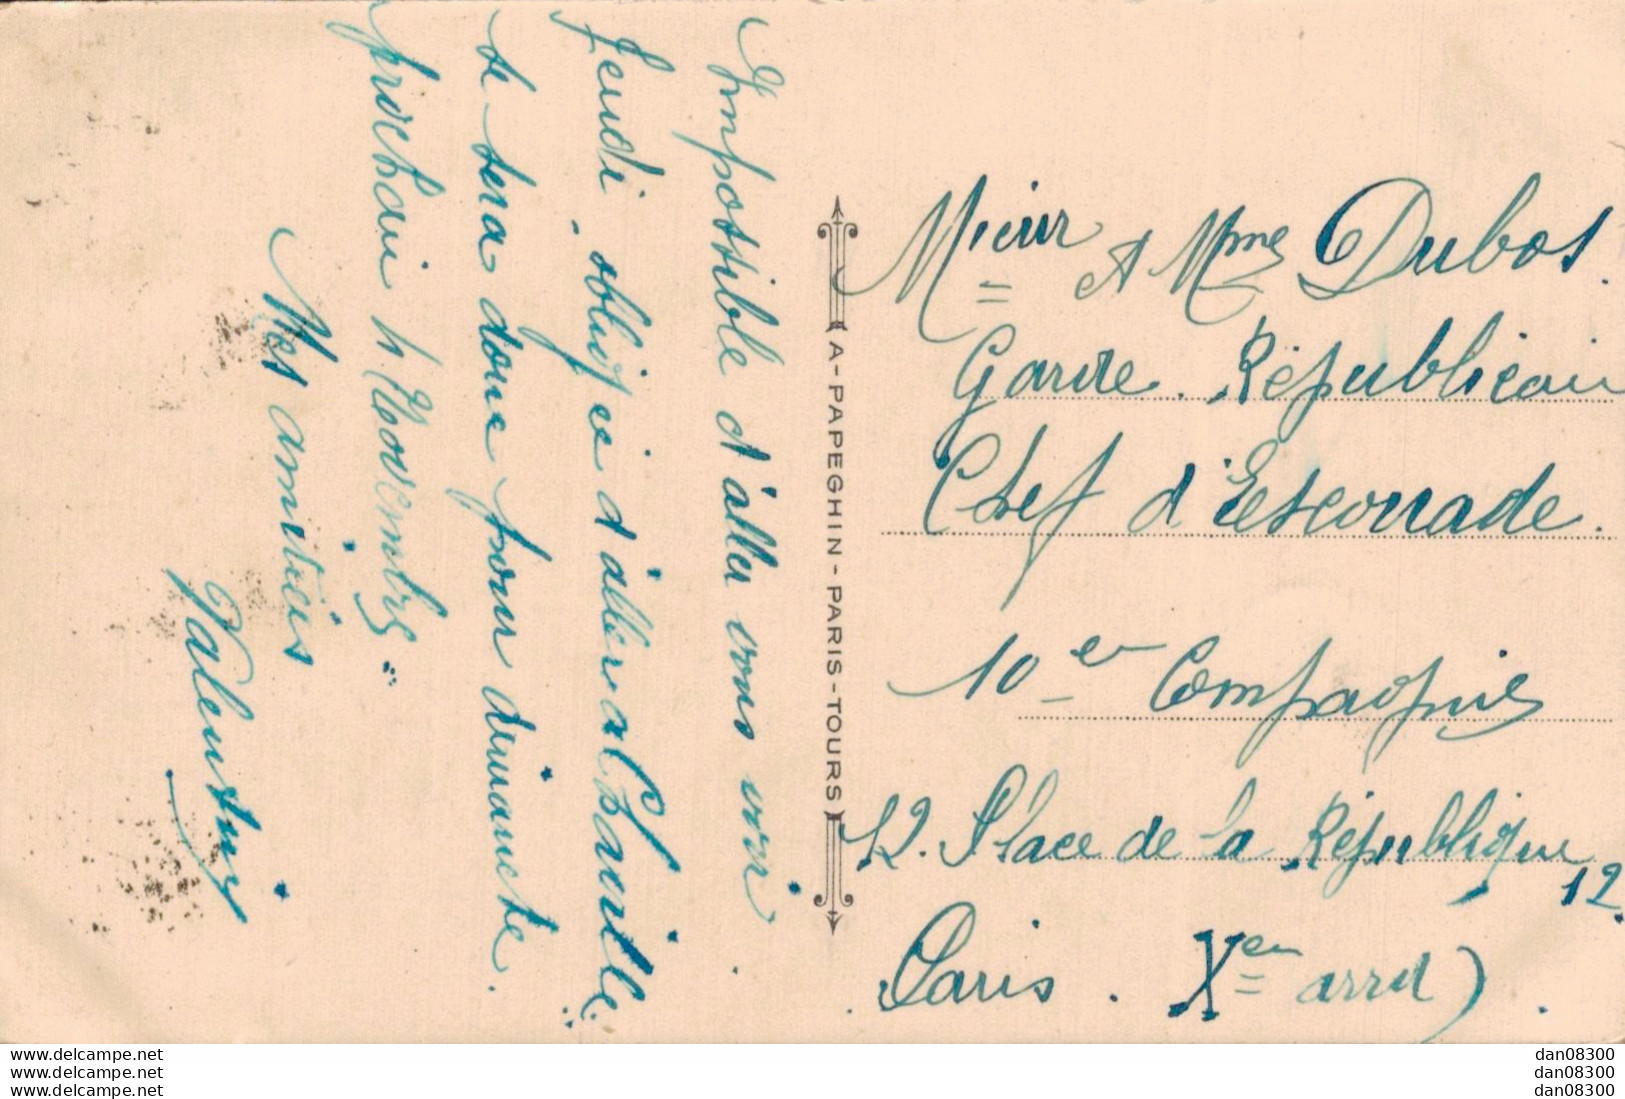 Impossible d'aller vous voir
jeudi, obligée d'aller at Chaville
se sera donc pour dimanche.
prochain 4 Novembre
Mes amitiés
Valentin
A-PAPEGHIN-PARIS-TOURS
Mieur et Mme Dubos.
Garde Républicain
Chef d'Escouade.
10 em Compagnies
12. Place de la République, 12.
Paris. X em arrd)
www.delcampe.net
www.delcampe.net
www.delcampe.net
dan08300
dan08300
dan08300